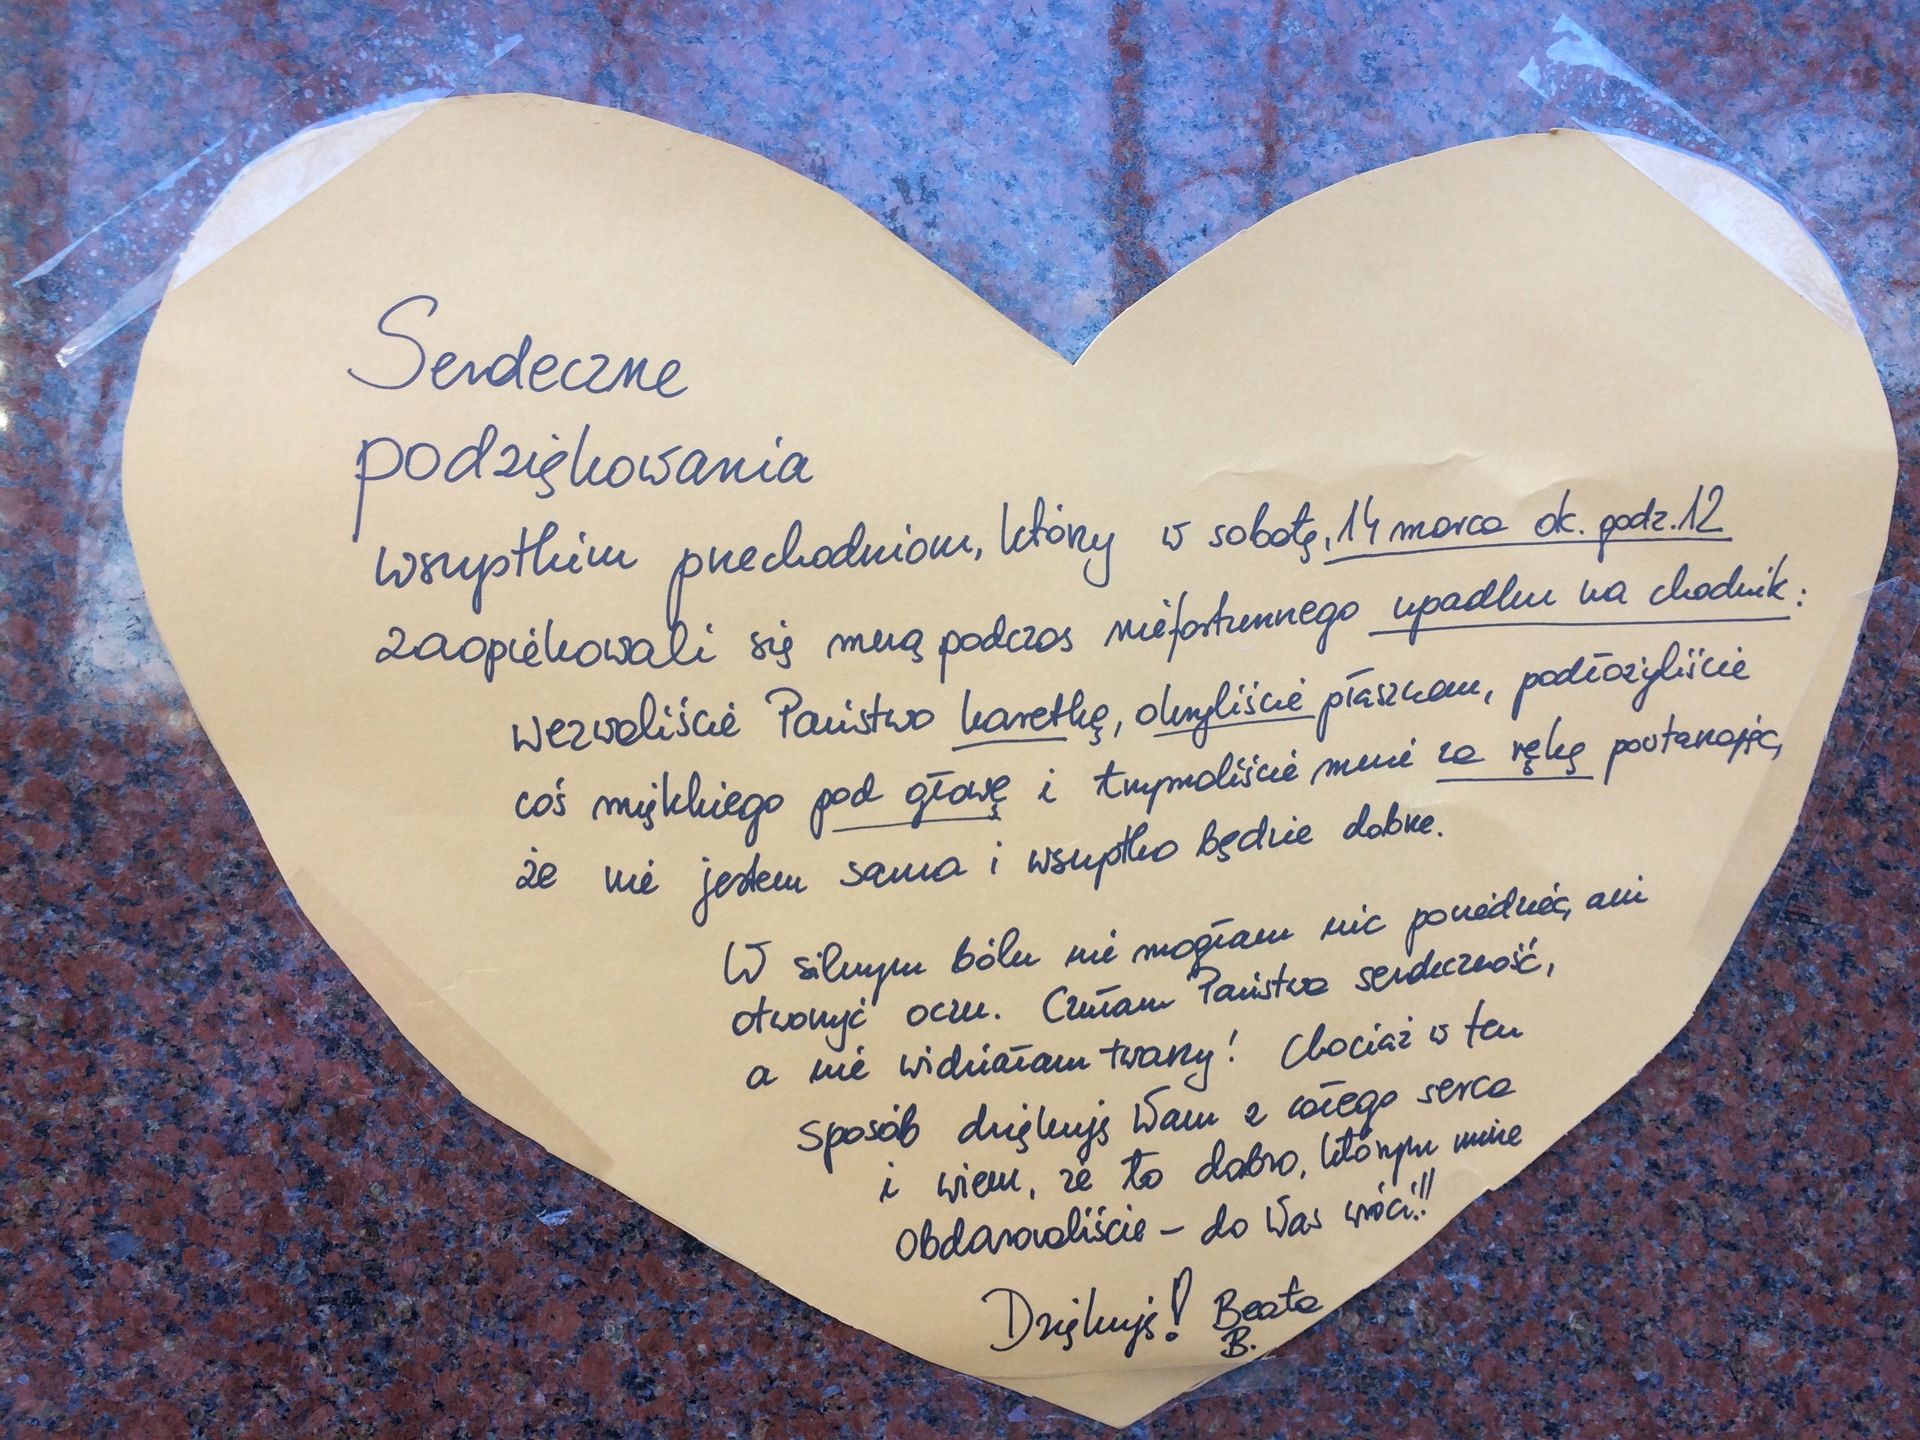 Serdeczne
podziękowania
wszystkim przechodniom, którzy w sobotę, 14 marca ok. godz. 12
zaopiekowali się mną podczas niefortunnego upadku na chodnik:
wezwaliście Państwo karetkę, okryliście płaszczem, podłożyliście
coś miękkiego pod głowę i trzymaliście mnie za rękę powtarzając,
że nie jestem sama i wszystko będzie dobrze.
W silnym bólu nie mogłam nic powiedzieć, ani
otworzyć oczu. Czułam Państwa serdeczność,
a nie widziałam twarzy! Chociaż w ten
sposób dziękuję Wam z całego serca
i wiem, że to dobro, którym mnie
obdarowaliście - do Was wróci!!
Dziękuję! Beata
B.